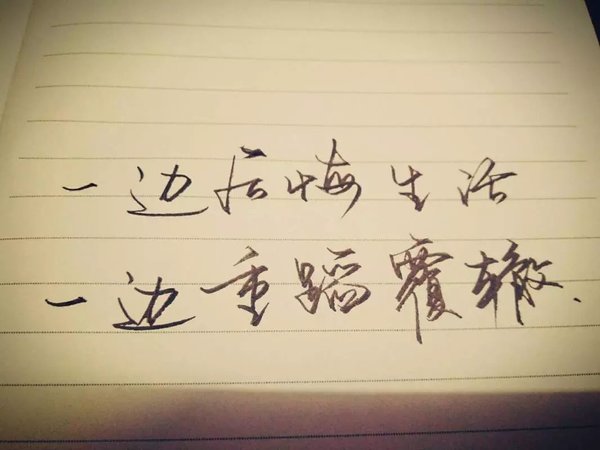 一边后悔生活
一边重蹈覆辙.